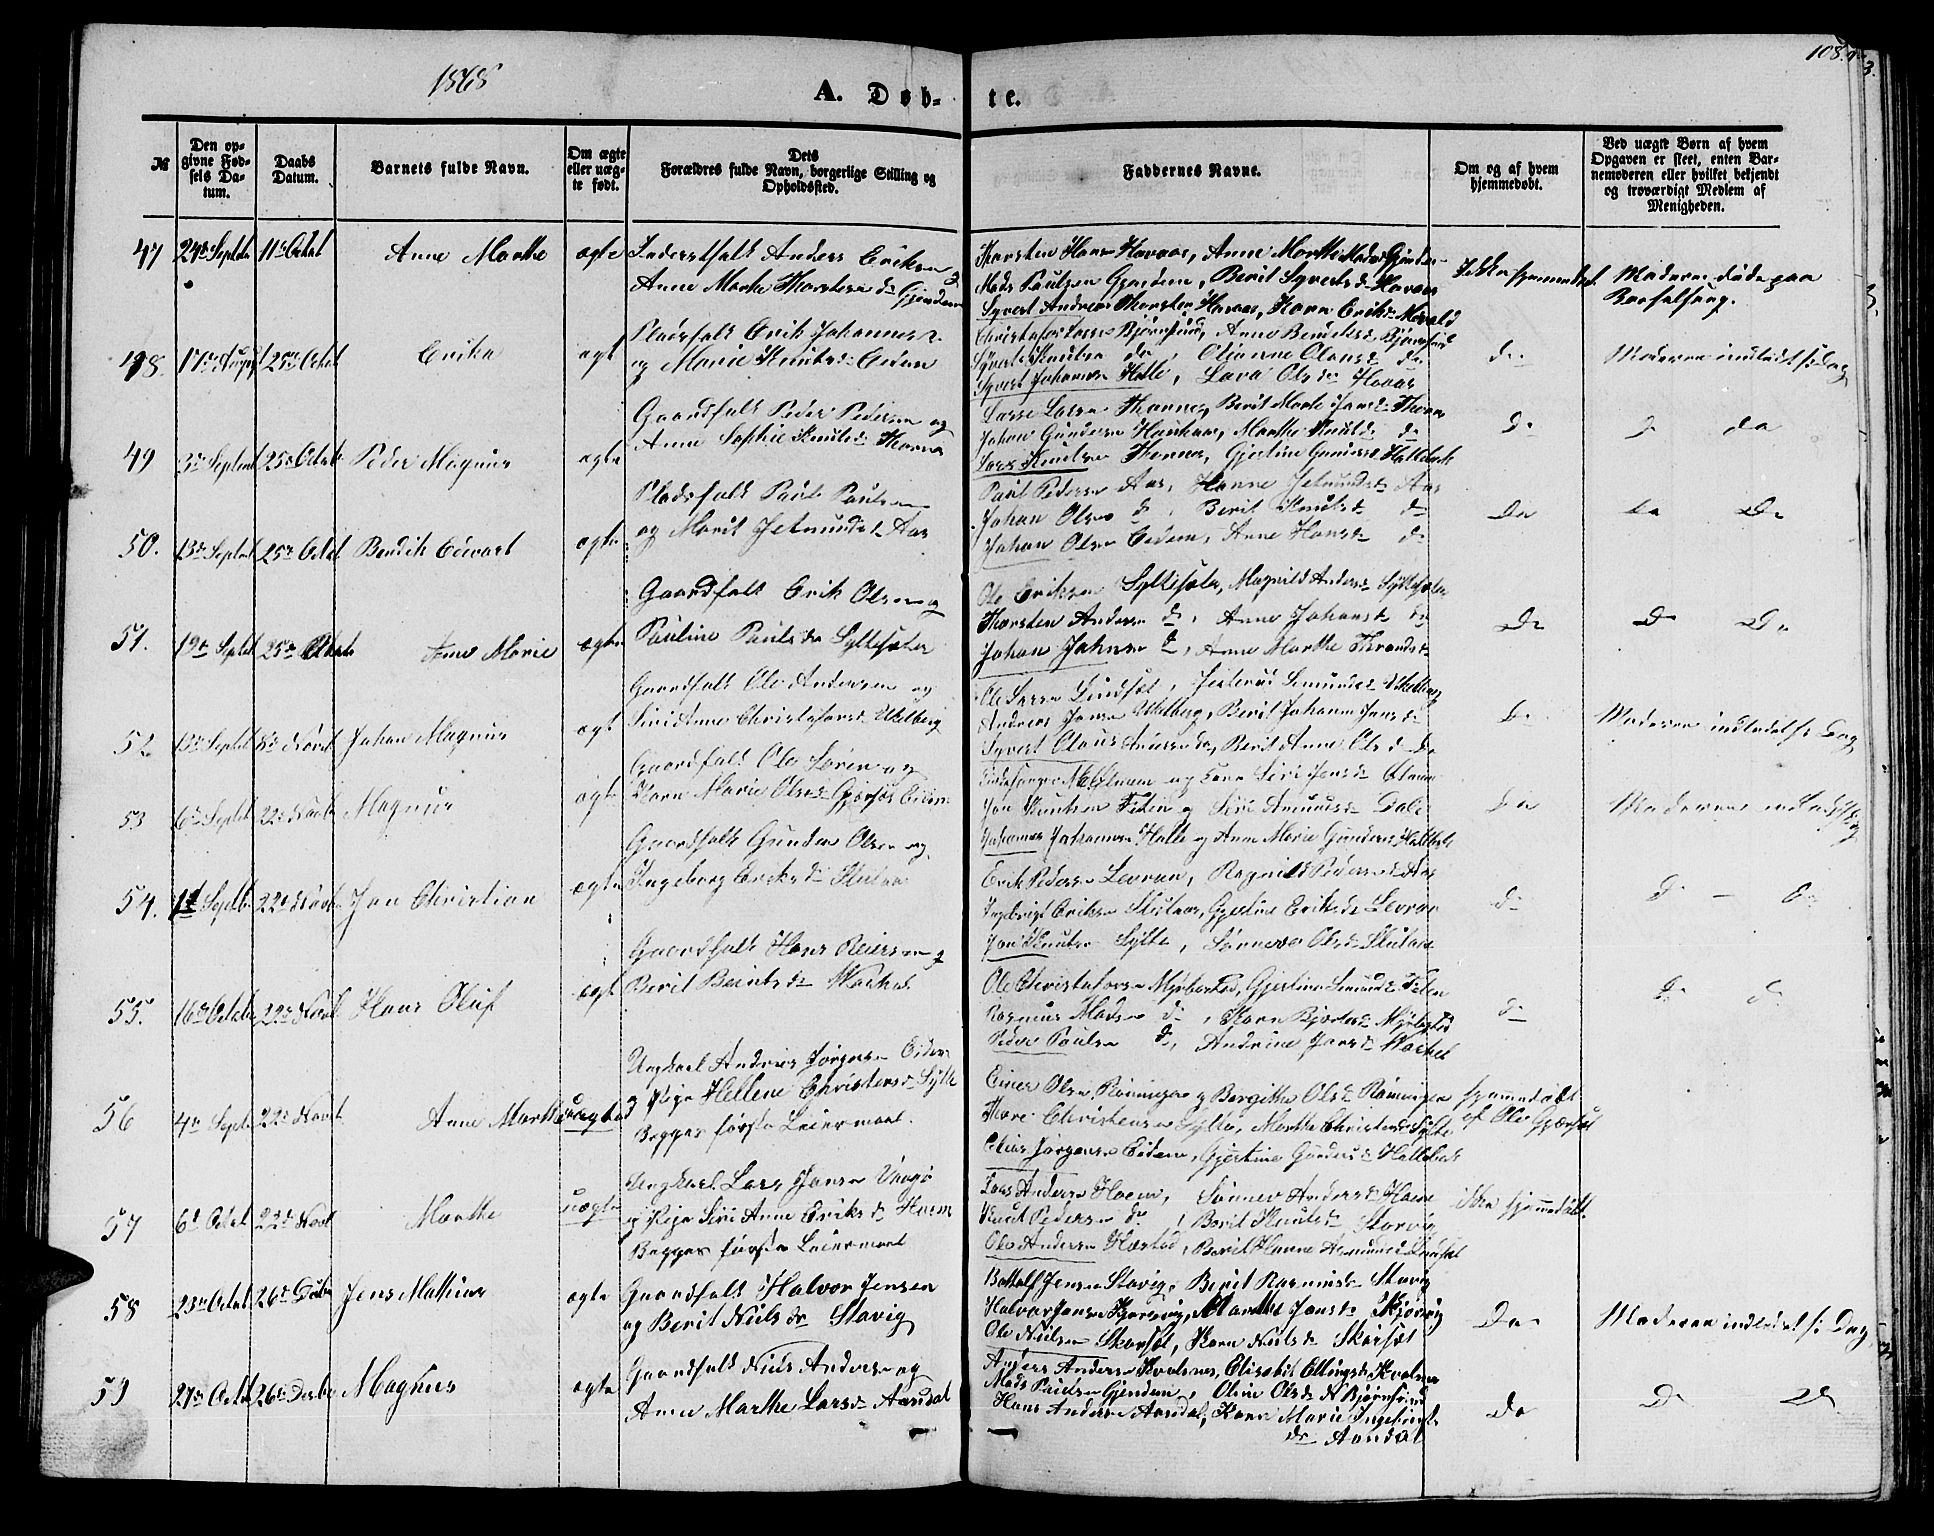 1868
A. Døb-
te.
108.
№
Den op-
givne Fød-
sels Da-
tum.
Daabs
Datum.
Barnets fulde Navn.
Om ægte
eller uæg-
te født.
Dets
Forældres fulde Navn, borgerlige Stilling og
Opholdssted.
Faddernes Navne.
Om og af hvem
hjemmedøbt.
Ved uægte Børn af hvem
Opgaven er skeet, enten Bar-
nemoderen eller hvilket bekjendt
og troværdigt Medlem af
Menigheden.
47 24de Septbr 11te Octbr Anne Marthe ægte
Anders Eriksen og
Anne Marte Thorstensdr Gjendem
Thorsten Hansen Hovaas, Anne Marthe Madsdr Gjendem
Mads Paulsen Gjendem, Berit Syvertsdr Hovaas
Syvert Andreas Thorsten Hovaas, Karen Eriksdr
Ikke hjemmedøbt. Moderen døde paa
Barselseng.
48. 17de August 25de Octbr Erika ægte
Pladsfolk Erik Johannesen
og Marie Knutsdr Eidem
Christofer Larsen Bjørnsund, Anne Bendiksdr Bjørnsund
Syvert Knutsen do, Oljanne Olausdr do
Syvert Johannesen Halle, Lava Olsdr Hovas
do Moderen indledet s. Dag
49 3de Septembr 25de Octbr Peder Magnus ægte
Gaardfolk Peder Pedersen og
Anne Sophie Knutsdr Thornes
Lasse Larsen Thornes, Berit Marte Jansdr Thornes
Johan Gundersen, Marthe Knutsdr do
Lars Knutsen Thornes, Gjertine Gundersdr Hallebak
do do do
50. 13de Septbr 25de Octbr Bendik Edvart ægte
Pladsfolk Paul Paulsen
og Marit Jetmundsdr Aas
Paul Pedersen Aas, Hanne Jetmundsdr Aas
Johan Olsen do, Berit Knutsdr do
Johan Olsen Eidem, Anne Hansdr do
Do do Do
51. 19de Septbr 25de Octbr Anne Marie ægte
Gaardfolk Erik Olsen og
Pauline Paulsdr Syltesæter
Ole Eriksen Syltesæter, Magnild Andersdr Syltesæter
Thorsten Andersen do, Anne Johansdr do
Johan Johnsen do, Anne Marthe Throndsdr
Do Do Do
52 13de Septbr 8de Novbr Johan Magnus ægt
Gaardfolk Ole Andersen og
Siri Anne Christofersdr Ukelberg
Ole Larsen Lindset, Gjertrud Semundsdr Ukelberg
Andreas Jansen Ukelberg, Berit Johanne Jansdr
Syvert Olaus Andersen do, Berit Anne Olsdr do
Do Moderen indledet s. Dag
53 6te Septbr 22de Novbr Magnus ægte
Gaardfolk Ole Sørensen og
Karn Marie Olsdr Gjærset Eidem
Jon Knutsen Teten og Siri Amundsdr Dale
Johannes Johannesen Halle og Anne Marie Gundersdr Hallebak
Do Moderen indledet s. Dag
54. 1st Septbr 22de Novbr Jon Christian ægte
Gaardfolk Gunder Olsen og
Ingeborg Eriksdr Stutaa
Erik Pedersen Levran, Ragnild Pedersdr Aas
Ingebrigt Eriksen Stutaas, Gjertine Eriksdr Levran
Jon Knutsen Sylte, Sønneva Olsdr Stutaa
do do — do
55. 16de Octbr 22de Novbr Hans Oluf ægt
Gaardfolk Hans Reiersen og
Berit Berntsdr Varhol
Ole Christofersen Myrbostad, Gjertine Semundsdr Teten
Rasmus Madsen do, Karn Bjørlesdr Myrbostad
Peder Paulsen do, Andrine Jansdr Varhol
do do do
56 4de Septbr 22de Novbr Anne Marthe uægte
Ungkarl Andreas Jørgensen Eidem
og Pige Hellene Christensdr Sylte
Begges første Leiermaal.
Einer Olsen Røningen og Bergitte Olsdr Røningen
Tore Christensen Sylte, Marthe Christensdr Sylte
Elias Jørgensen Eidem, Gjertine Gundersdr Hallebak
hjemmedøbt
af Ole Gjærset
57 6te Octbr 22de Novbr Marthe uægte
Ungkarl Lars Jansen Vaagø
og Pige Siri Anne Eriksdr Haem
Begges første Leiermaal
Lars Andersen Haem, Sønnev Andersdr Haem
Knut Pedersen do, Berit Knutsdr Starvig
Ole Andersen Hæstad, Berit Hanne Asmundsdr Lindset
ikke hjemmedøbt.
58 23de Octbr 26de Decbr Jens Mathias ægte
Gaardfolk Halvor Jensen
og Berit Nielsdr Stavig
Bottolf Jensen Stavig, Berit Rasmusdr Stavig
Halvor Jansen Skjørvig, Marthe Jansdr Skjørvig
Ole Nielsen Skarset, Karn Nielsdr Skarset
Do Moderen indledet s. Dag
59 27de Octbr 26de Decbr Magnus ægte
Gaardfolk Niels Andersen og
Anne Marthe Larsdr Aandal
Anders Andersen Hvalsnes, Elisabet Ellingsdr Hvalsnes
Mads Paulsen Gjendem, Oline Olsdr Bjørnsund
Hans Andersen Aandal, Karn Marie Ingebrigts
dr Aandal
Do Do Do